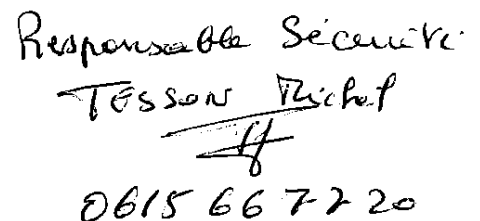 Responsable Sécurité
TESSON Michel
0615 66 72 20